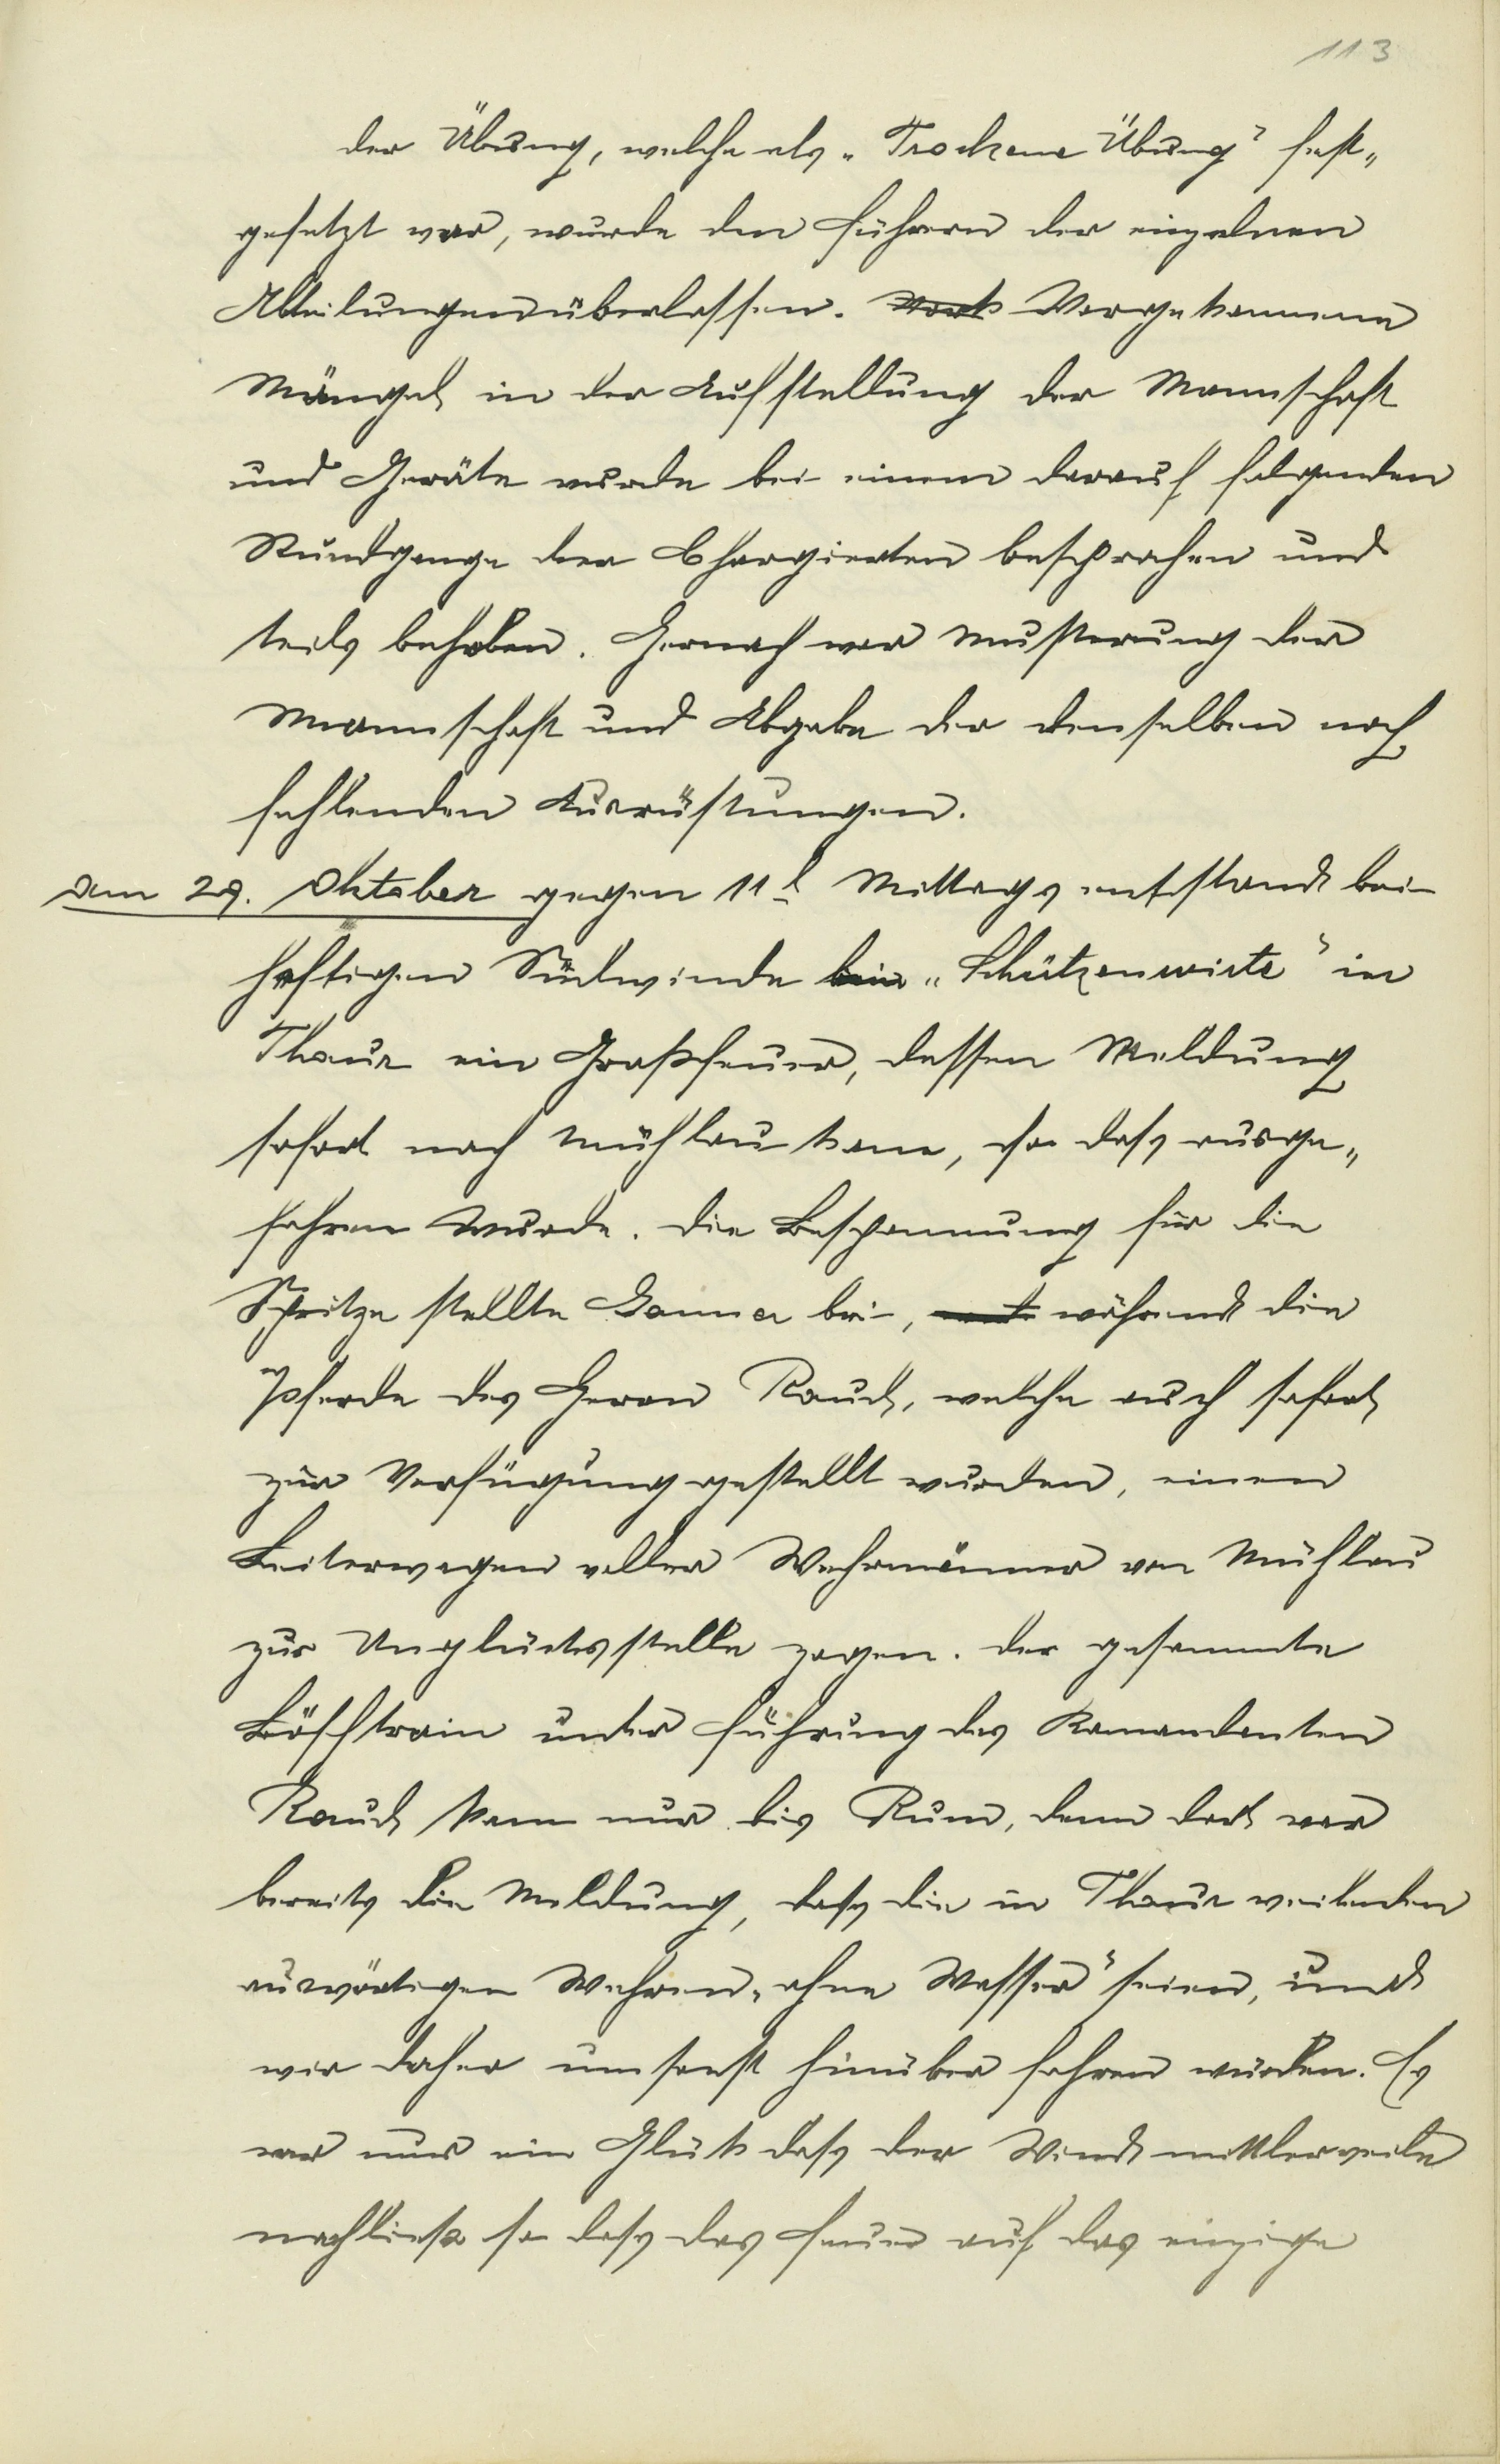 113
der Übung, welche als „Trockene Übung" fest„
gesetzt war, wurde den Führern der einzelnen
Abteilungen überlassen. Vorgekommene
Mängel in der Aufstellung der Mannschaft
und Geräte wurde bei einem darauf folgenden
Rundgange der Chargierten besprochen und
teils behoben. Hernach war Musterung der
Mannschaft und Abgabe der denselben noch
fehlenden Ausrüstungen.
Am 29. Oktober gegen 11h Mittags entstand bei
heftigen Südwinde beim „Schützenwirte" in
Thaur ein Großfeuer, dessen Meldung
sofort nach Mühlau kam, so dass ausge„
fahren wurde. Die Bespannung für die
Spritze stellte Hanner bei, während die
Pferde des Herrn Rauch, welche auch sofort
zur Verfügung gestellt wurden, einen
Leiterwagen voller Wehrmänner von Mühlau
zur Unglücksstelle zogen. Der gesammte
Löschtrain unter Führung des Komandanten
Rauch kam nur bis Rum, denn dort war
bereits die Meldung, dass die in Thaur weilenden
auswärtigen Wehren „ohne Wasser" seien, und
wir daher umsonst hinüber fahren würden. Es
war nur ein Glück dass der Wind mittlerweile
nachließ so dass das Feuer auf das einzige